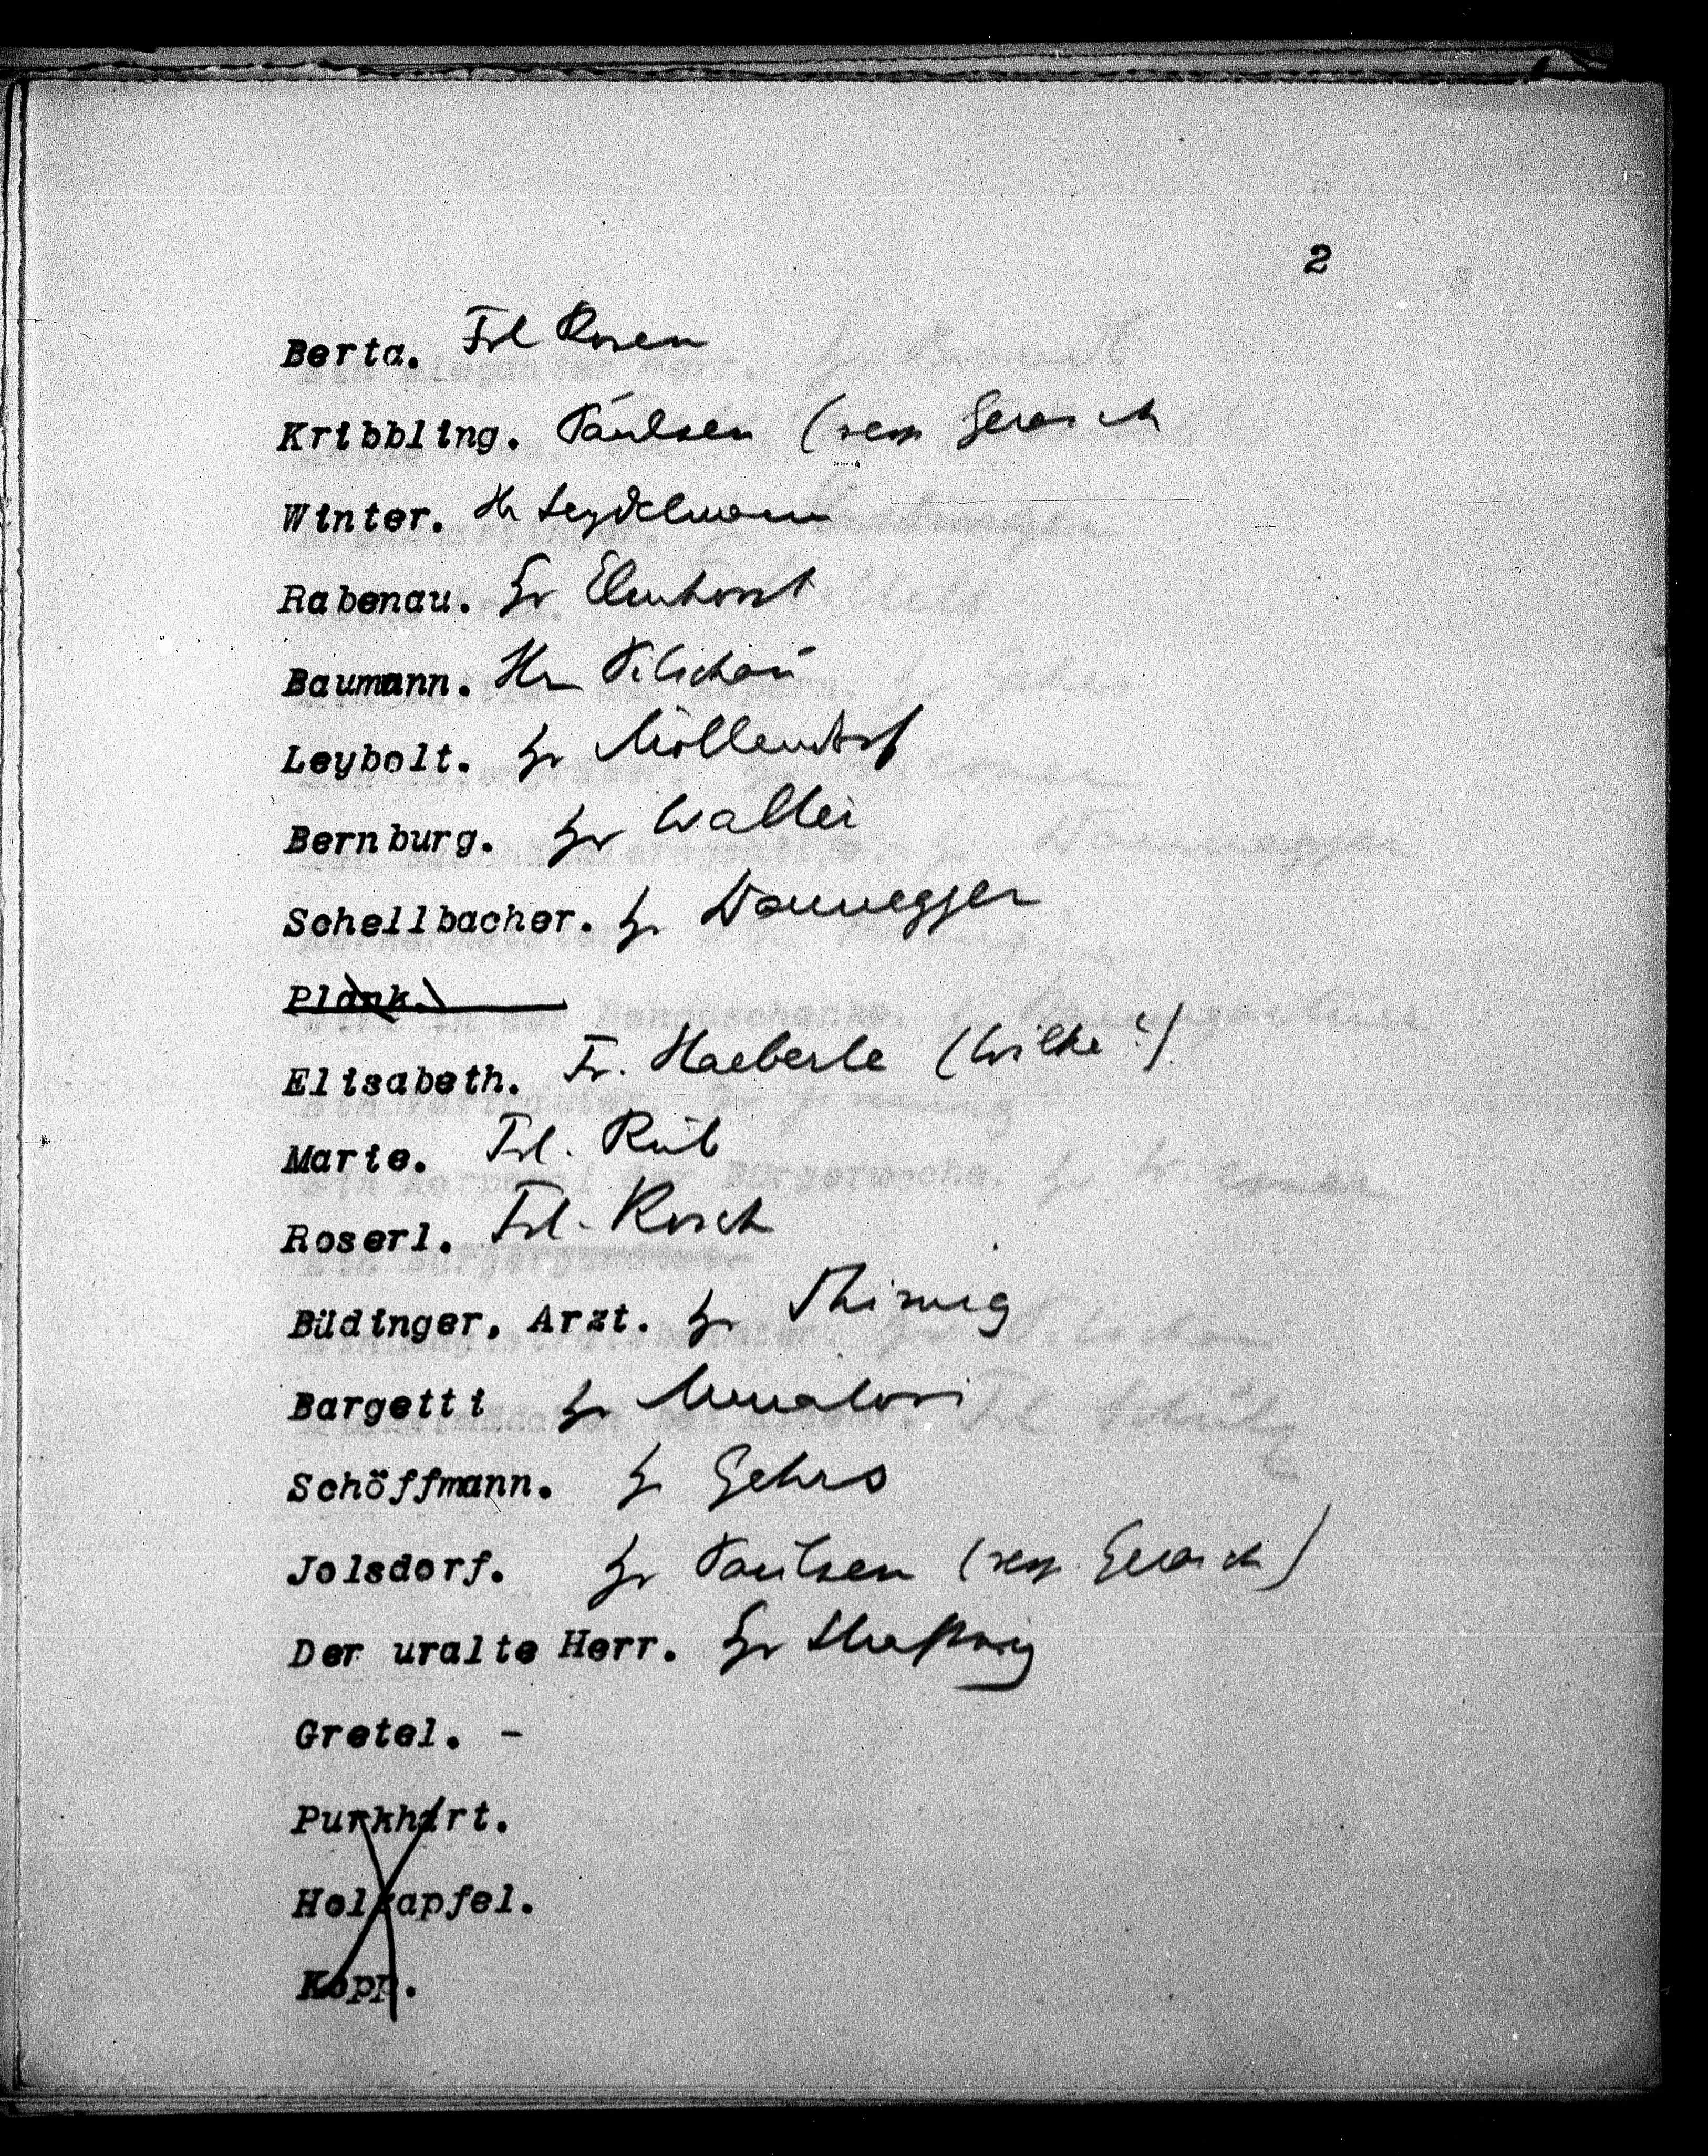 2
Berta. Frl Rosen
Kribbling. Paulsen (resp Gerasch
Winter. Hr Seydelmann
Rabenau. Hr Elmhorst
Baumann. Hr Pilschau
Leybolt. Hr Möllendorf
Bernburg. Hr Walter
Schellbacher. Hr Dannegger
Plank.
Elisabeth. Fr. Haeberle (Wilke?)
Marie. Frl. Rüb
Roserl. Frl. Rosch
Büdinger, Arzt. Hr Thimig
Bargetti Hr Muratori
Schöffmann. Hr Gehrs
Jolsdorf. Hr Paulsen (resp. Gerasch)
Der uralte Herr. Hr
Gretel. -
Purkhart.
Holzapfel.
Kopp.